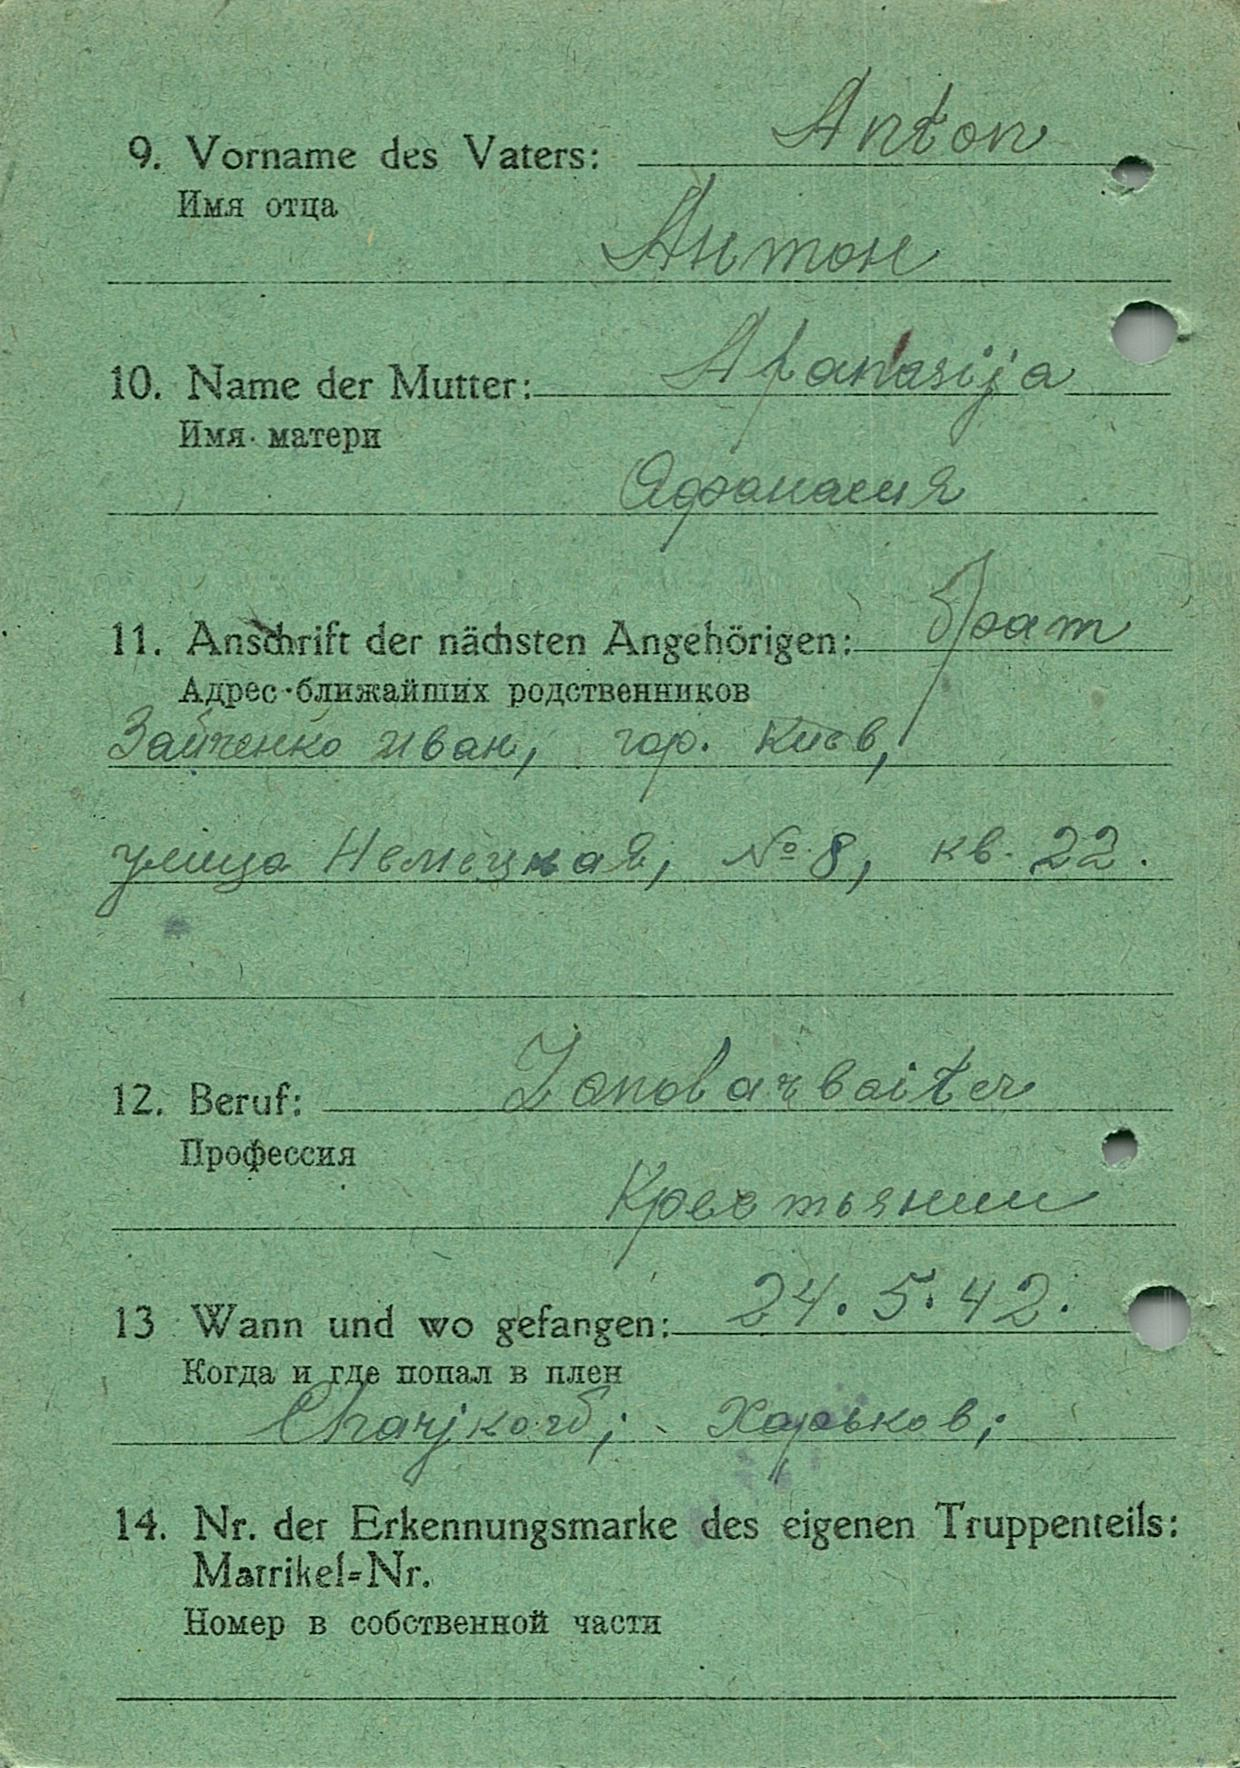 9. Vorname des Vaters: Anton
Имя отца
Антон
10. Name der Mutter: Afanasija
Имя матери
Афанасия
11. Anschrift der nächsten Angehörigen: брат
Адрес ближайших родственников
Зайченко Иван, гор. Киев,
улица Немецкая, № 8, кв. 22.
12. Beruf: Landarbaiter
Профессия
Крестьянин
13 Wann und wo gefangen: 24. 5. 42.
Когда и где попал в плен
Харьков;
14. Nr. der Erkennungsmarke des eigenen Truppenteils:
Matrikel=Nr.
Номер в собственной части